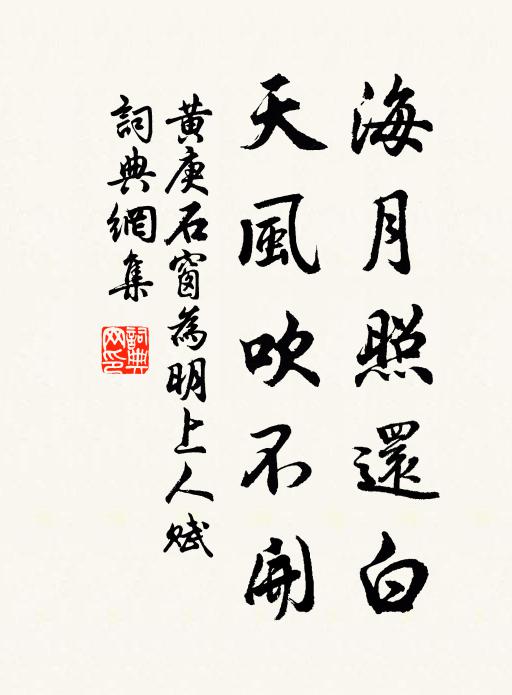 海月照還白
天風吹不開
黃庚石窗為明上人賦
詞典網集
詞典網印